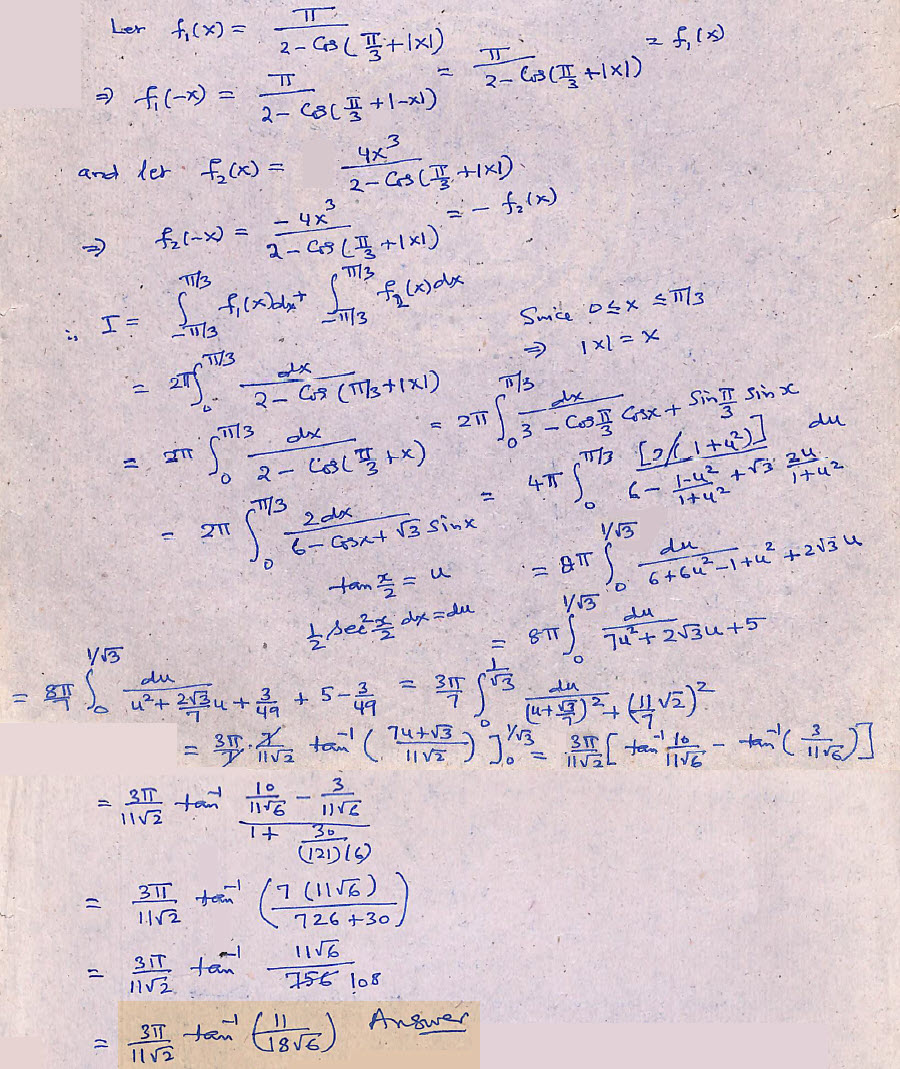 Let f₁(x) = π / (2 - Cos(π/3 + |x|))
⇒ f₁(-x) = π / (2 - Cos(π/3 + |-x|)) = π / (2 - Cos(π/3 + |x|)) = f₁(x)
and let f₂(x) = 4x³ / (2 - Cos(π/3 + |x|)).
⇒ f₂(-x) = -4x³ / (2 - Cos(π/3 + |x|)) = - f₂(x)
∴ I = ∫_{-π/3}^{π/3} f₁(x)dx + ∫_{-π/3}^{π/3} f₂(x)dx
Since 0 ≤ x ≤ π/3
⇒ |x| = x
= 2π ∫₀^{π/3} dx / (2 - Cos(π/3 + |x|))
= 2π ∫₀^{π/3} dx / (2 - Cos(π/3 + x)) = 2π ∫₀^{π/3} dx / (3 - Cos π/3 Cosx + Sin π/3 Sin x)
= 2π ∫₀^{π/3} 2dx / (6 - Cosx + √3 Sinx) = 4π ∫₀^{π/3} [2/(1+u²)] du / (6 - (1-u²)/(1+u²) + √3 2u/(1+u²))
tan x/2 = u
½ sec² x/2 dx = du
= 8π ∫₀^{1/√3} du / (6+6u²-1+u²+2√3 u)
= 8π ∫₀^{1/√3} du / (7u² + 2√3u + 5)
= 8π/7 ∫₀^{1/√3} du / (u² + 2√3/7 u + 3/49 + 5 - 3/49) = 3π/7 ∫₀^{1/√3} du / ((u + √3/7)² + (11/7 √2)²)
= 3π/7 · 7/(11√2) tan⁻¹ ( (7u+√3)/(11√2) ) ]₀^{1/√3} = 3π/(11√2) [ tan⁻¹ 10/(11√6) - tan⁻¹ ( 3/(11√6) ) ]
= 3π/(11√2) tan⁻¹ (10/(11√6) - 3/(11√6)) / (1 + 30/((121)(6)))
= 3π/(11√2) tan⁻¹ ( 7(11√6) / (726 + 30) )
= 3π/(11√2) tan⁻¹ 11√6 / 756 108
= 3π/(11√2) tan⁻¹ ( 11/(18√6) ) Answer